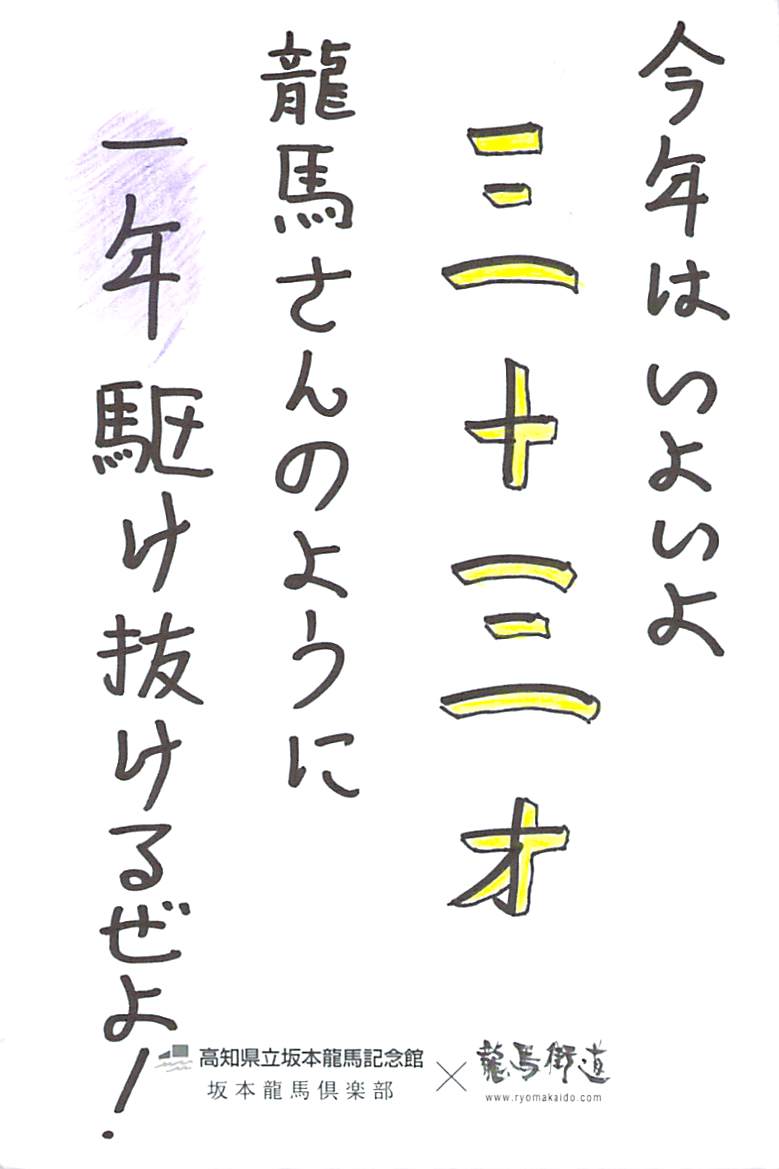 今年はいよいよ
三十三才
龍馬さんのように
一年駆け抜けるぜよ！
高知県立坂本龍馬記念館
坂本龍馬倶楽部
×
龍馬街道
www.ryomakaido.com